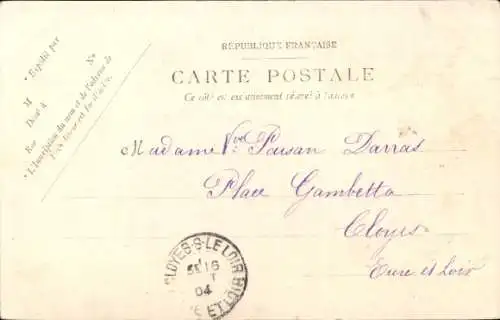 RÉPUBLIQUE FRANÇAISE
CARTE POSTALE
Ce côté est exclusivement réservé à l'adresse
* Expédié par
M
N°
Demt à
Rue
* L'Inscription du nom et de l'adresse de
Madame Vve Paisan Darras
Place Gambetta
Cloyes
Eure et Loir
CLOYES-S-LE LOIR
16
04
E ET LOIR